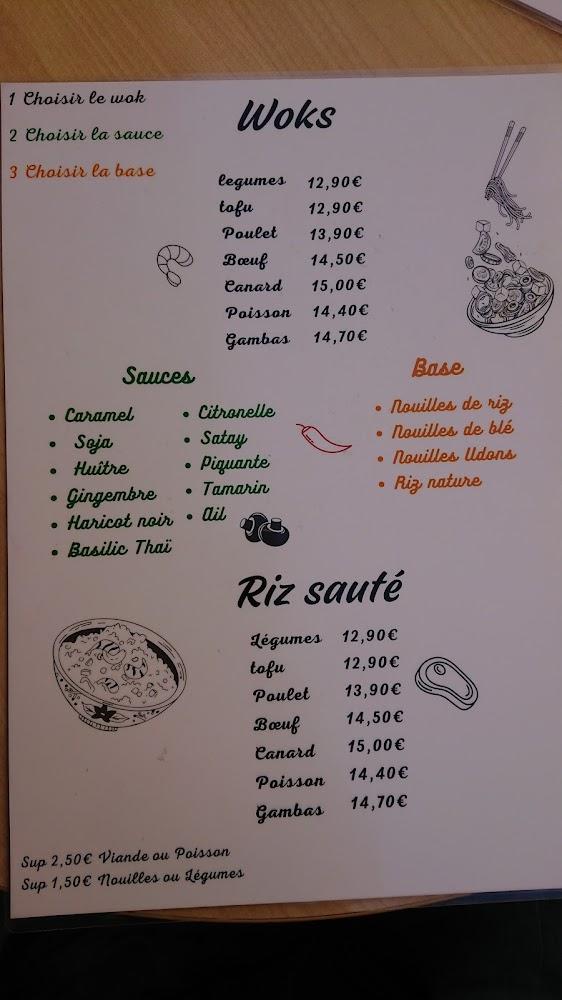 1 Choisir le wok
2 Choisir la sauce
3 Choisir la base
Woks
legumes 12,90€
tofu 12,90€
Poulet 13,90€
Bœuf 14,50€
Canard 15,00€
Poisson 14,40€
Gambas 14,70€
Sauces
• Caramel
• Soja
• Huître
• Gingembre
• Haricot noir
• Basilic Thaï
• Citronelle
• Satay
• Piquante
• Tamarin
• Ail
Base
• Nouilles de riz
• Nouilles de blé
• Nouilles Udons
• Riz nature
Riz sauté
Légumes 12,90€
tofu 12,90€
Poulet 13,90€
Bœuf 14,50€
Canard 15,00€
Poisson 14,40€
Gambas 14,70€
Sup 2,50€ Viande ou Poisson
Sup 1,50€ Nouilles ou Légumes